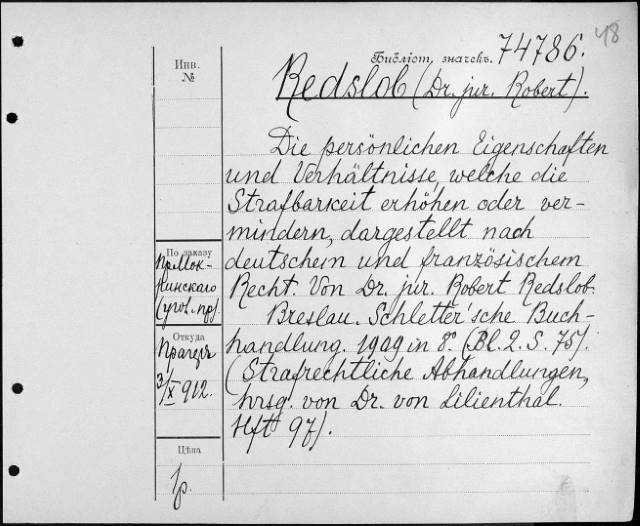 48
Библіот. значекъ. 74786.
Инв.
№
Redslob (Dr. jur. Robert).
Die persönlichen Eigenschaften
und Verhältnisse, welche die
Strafbarkeit erhöhen oder ver-
mindern, dargestellt nach
deutschem und französischem
Recht. Von Dr. jur. Robert Redslob.
Breslau. Schletter'sche Buch-
handlung. 1909 in 8°. (Bl. 2. S. 75).
(Strafrechtliche Abhandlungen,
hrsg. von Dr. von Lilienthal.
Hft 97).
По заказу
пр. Мок-
ринскаго
(угол. пр).
Откуда
Прагеръ
3/X 912.
Цѣна